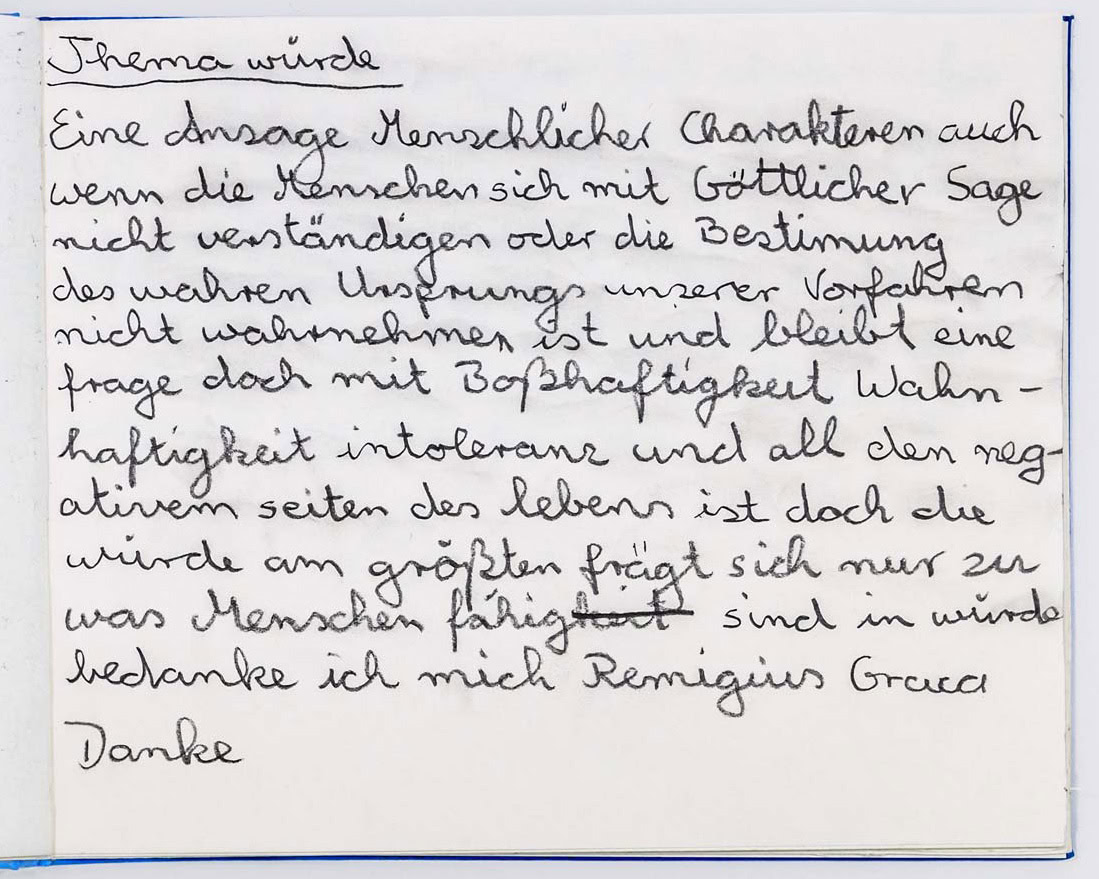 Thema würde
Eine Ansage Menschlicher Charakteren auch
wenn die Menschen sich mit Göttlicher Sage
nicht verständigen oder die Bestimung
des wahren Ursprungs unserer Vorfahren
nicht wahrnehmen ist und bleibt eine
frage doch mit Boßhaftigkeit Wahn-
haftigkeit intoleranz und all den neg-
ativem seiten des lebens ist doch die
würde am größten frägt sich nur zu
was Menschen fähigkeit sind in würde
bedanke ich mich Remigius
Danke